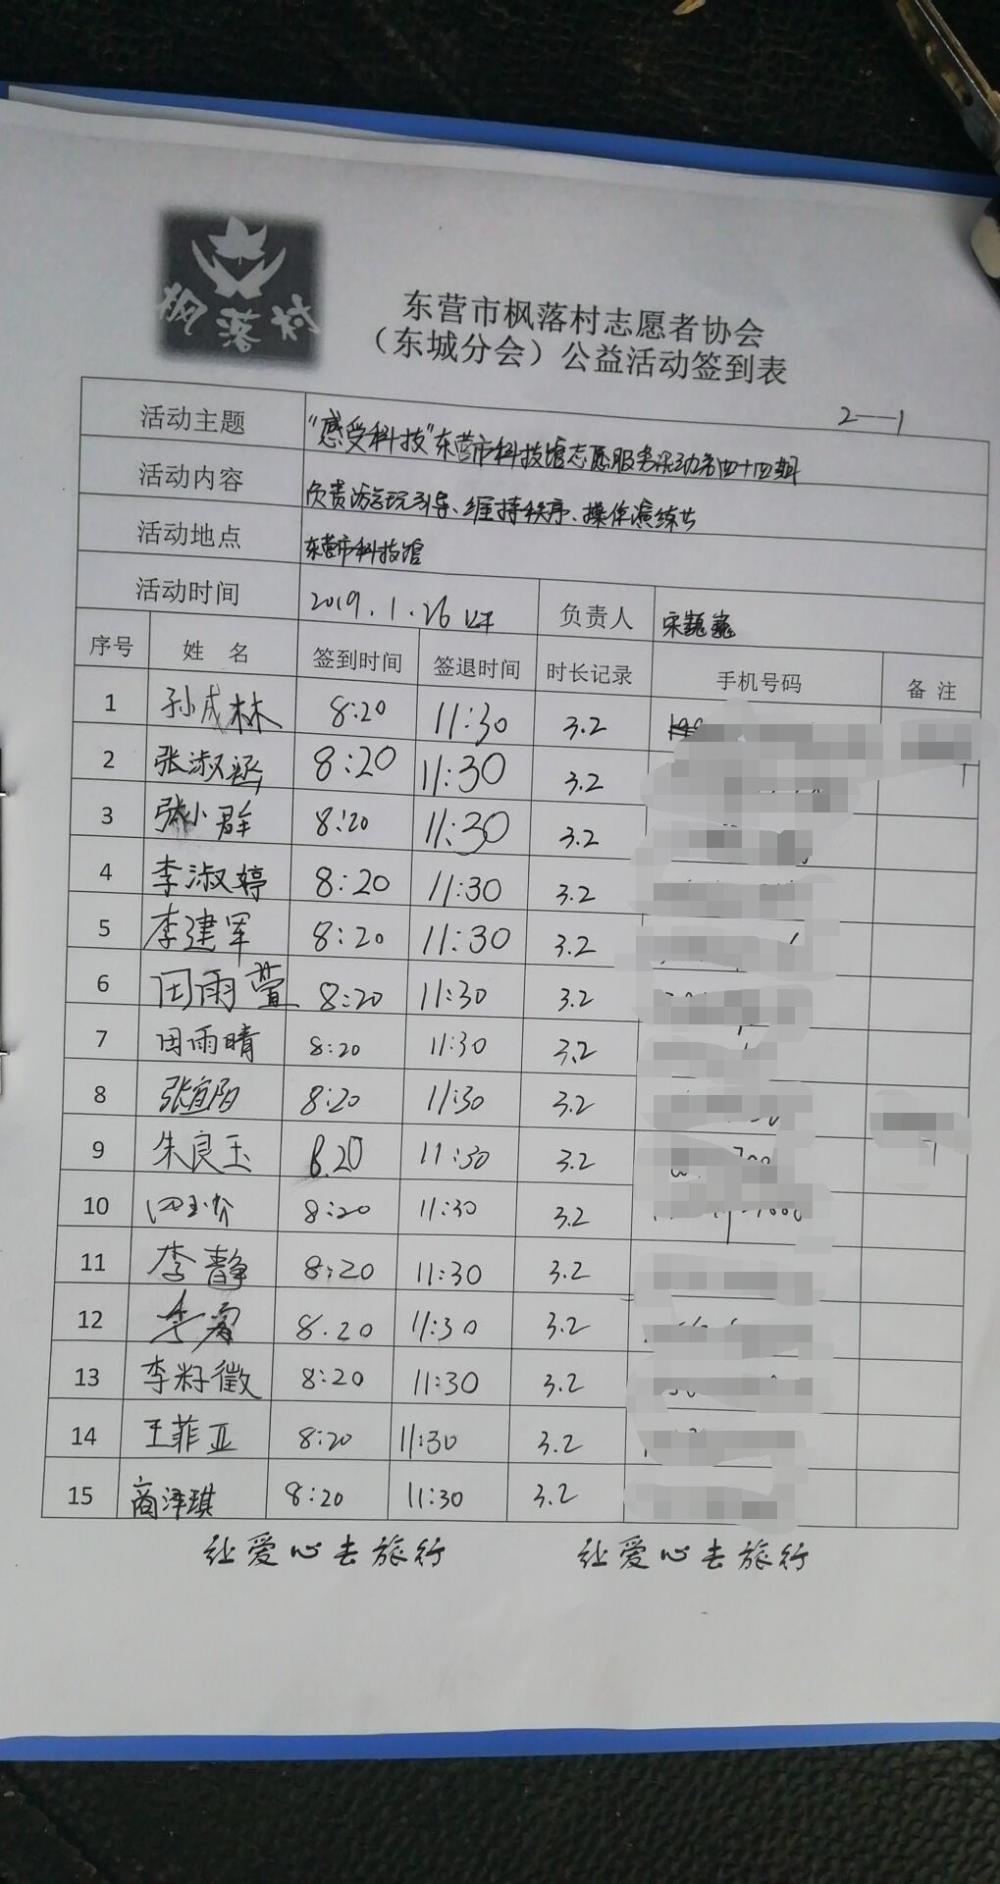 枫落村
东营市枫落村志愿者协会
（东城分会）公益活动签到表
2—1
活动主题 "感受科技"东营市科技馆志愿服务活动第四十四期
活动内容 负责游客玩引导、维持秩序、操作演练等
活动地点 东营市科技馆
活动时间 2019.1.26 上午 负责人 宋巍巍
序号 姓 名 签到时间 签退时间 时长记录 手机号码 备 注
1 孙成林 8:20 11:30 3.2
2 张淑涵 8:20 11:30 3.2
3 张小群 8:20 11:30 3.2
4 李淑婷 8:20 11:30 3.2
5 李建军 8:20 11:30 3.2
6 田雨萱 8:20 11:30 3.2
7 田雨晴 8:20 11:30 3.2
8 张宜阳 8:20 11:30 3.2
9 朱良玉 8.20 11:30 3.2
10 8:20 11:30 3.2
11 李静 8:20 11:30 3.2
12 8.20 11:30 3.2
13 李籽徵 8:20 11:30 3.2
14 王菲亚 8:20 11:30 3.2
15 商泽琪 8:20 11:30 3.2
让爱心去旅行 让爱心去旅行